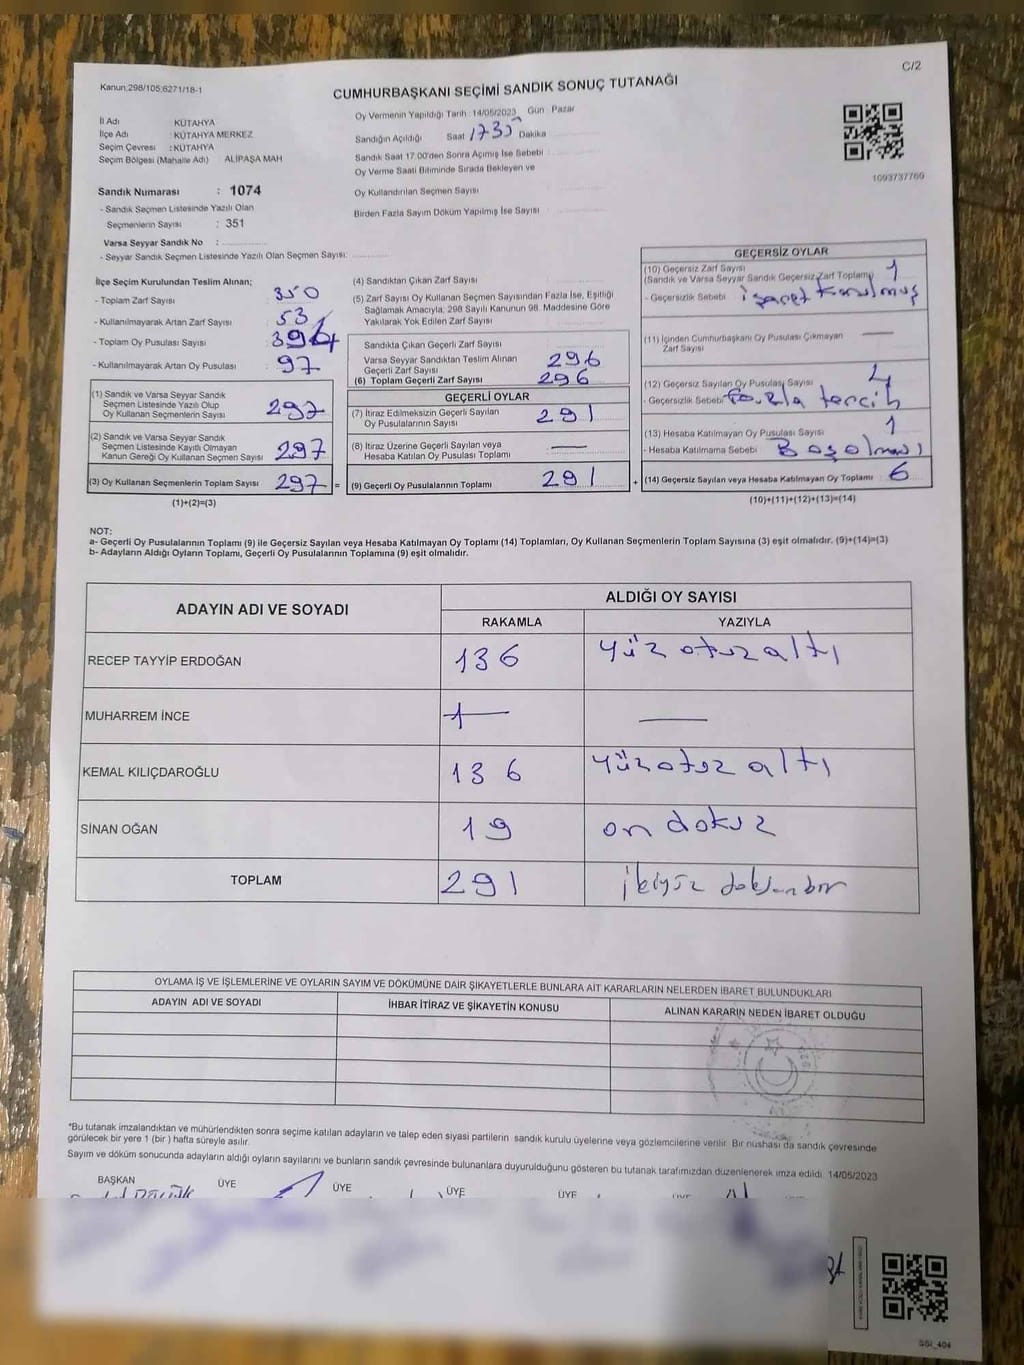 C/2
Kanun:298/105;6271/18-1
CUMHURBAŞKANI SEÇİMİ SANDIK SONUÇ TUTANAĞI
İl Adı KÜTAHYA
İlçe Adı : KÜTAHYA MERKEZ
Seçim Çevresi : KÜTAHYA
Seçim Bölgesi (Mahalle Adı) ALİPAŞA MAH
Sandık Numarası : 1074
- Sandık Seçmen Listesinde Yazılı Olan
Seçmenlerin Sayısı : 351
Varsa Seyyar Sandık No :
- Seyyar Sandık Seçmen Listesinde Yazılı Olan Seçmen Sayısı:
Oy Vermenin Yapıldığı Tarih :14/05/2023 Gün : Pazar
Sandığın Açıldığı Saat 1735 Dakika
Sandık Saat 17:00'den Sonra Açımış İse Sebebi :
Oy Verme Saati Bitiminde Sırada Bekleyen ve
Oy Kullandırılan Seçmen Sayısı
Birden Fazla Sayım Döküm Yapılmış İse Sayısı
1093737769
İlçe Seçim Kurulundan Teslim Alınan;
- Toplam Zarf Sayısı 350
- Kullanılmayarak Artan Zarf Sayısı 53
- Toplam Oy Pusulası Sayısı 394
- Kullanılmayarak Artan Oy Pusulası 97
(1) Sandık ve Varsa Seyyar Sandık
Seçmen Listesinde Yazılı Olup
Oy Kullanan Seçmenlerin Sayısı 297
(2) Sandık ve Varsa Seyyar Sandık
Seçmen Listesinde Kayıtlı Olmayan
Kanun Gereği Oy Kullanan Seçmen Sayısı 297
(3) Oy Kullanan Seçmenlerin Toplam Sayısı 297 =
(1)+(2)=(3)
(4) Sandıktan Çıkan Zarf Sayısı
(5) Zarf Sayısı Oy Kullanan Seçmen Sayısından Fazla İse, Eşitliği
Sağlamak Amacıyla; 298 Sayılı Kanunun 98. Maddesine Göre
Yakılarak Yok Edilen Zarf Sayısı
Sandıkta Çıkan Geçerli Zarf Sayısı
Varsa Seyyar Sandıktan Teslim Alınan
Geçerli Zarf Sayısı 296
(6) Toplam Geçerli Zarf Sayısı 296
GEÇERLİ OYLAR
(7) İtiraz Edilmeksizin Geçerli Sayılan
Oy Pusulalarının Sayısı 291
(8) İtiraz Üzerine Geçerli Sayılan veya
Hesaba Katılan Oy Pusulası Toplamı —
(9) Geçerli Oy Pusulalarının Toplamı 291 +
GEÇERSİZ OYLAR
(10) Geçersiz Zarf Sayısı
(Sandık ve Varsa Seyyar Sandık Geçersiz Zarf Toplamı) 1
- Geçersizlik Sebebi işaret konulmuş
(11) İçinden Cumhurbaşkanı Oy Pusulası Çıkmayan
Zarf Sayısı —
(12) Geçersiz Sayılan Oy Pusulası Sayısı 4
- Geçersizlik Sebebi Fazla tercih
(13) Hesaba Katılmayan Oy Pusulası Sayısı 1
- Hesaba Katılmama Sebebi Boş olması
(14) Geçersiz Sayılan veya Hesaba Katılmayan Oy Toplamı 6
(10)+(11)+(12)+(13)=(14)
NOT:
a- Geçerli Oy Pusulalarının Toplamı (9) ile Geçersiz Sayılan veya Hesaba Katılmayan Oy Toplamı (14) Toplamları, Oy Kullanan Seçmenlerin Toplam Sayısına (3) eşit olmalıdır. (9)+(14)=(3)
b- Adayların Aldığı Oyların Toplamı, Geçerli Oy Pusulalarının Toplamına (9) eşit olmalıdır.
ADAYIN ADI VE SOYADI ALDIĞI OY SAYISI
RAKAMLA YAZIYLA
RECEP TAYYİP ERDOĞAN 136 yüz otuz altı
MUHARREM İNCE — —
KEMAL KILIÇDAROĞLU 136 yüz otuz altı
SİNAN OĞAN 19 on dokuz
TOPLAM 291 ikiyüz doksanbir
OYLAMA İŞ VE İŞLEMLERİNE VE OYLARIN SAYIM VE DÖKÜMÜNE DAİR ŞİKAYETLERLE BUNLARA AİT KARARLARIN NELERDEN İBARET BULUNDUKLARI
ADAYIN ADI VE SOYADI İHBAR İTİRAZ VE ŞİKAYETİN KONUSU ALINAN KARARIN NEDEN İBARET OLDUĞU
*Bu tutanak imzalandıktan ve mühürlendikten sonra seçime katılan adayların ve talep eden siyasi partilerin sandık kurulu üyelerine veya gözlemcilerine verilir. Bir nüshası da sandık çevresinde
görülecek bir yere 1 (bir ) hafta süreyle asılır.
Sayım ve döküm sonucunda adayların aldığı oyların sayılarını ve bunların sandık çevresinde bulunanlara duyurulduğunu gösteren bu tutanak tarafımızdan düzenlenerek imza edildi. 14/05/2023
BAŞKAN ÜYE ÜYE ÜYE ÜYE ÜYE
SSİ_404